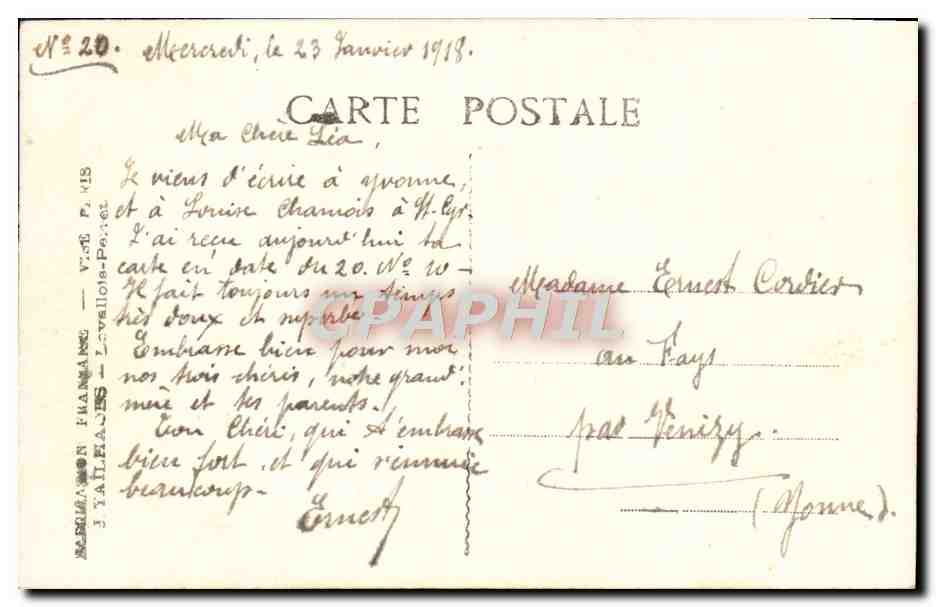 Nº 20. Mercredi, le 23 Janvier 1918.
CARTE POSTALE
Ma Chère Léa,
Je viens d'écrire à Yvonne,
et à Louise Chamois à St-Cyr.
J'ai reçu aujourd'hui ta
carte en date du 20. Nº 10 –
Il fait toujours un temps
très doux et superbe.
Embrasse bien pour moi
nos trois chéris, notre grand'
mère et tes parents.
Ton Chéri, qui t'embrasse
bien fort, et qui s'ennuie
beaucoup.
Ernest
Madame Ernest Cordier
au Fays
par Venizy.
(Yonne).
FRANÇAISE — VISÉ PARIS
J. TAILHADES – Levallois-Perret
CPAPHIL